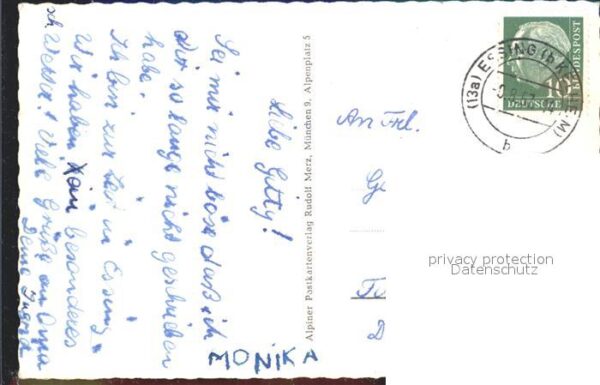 Liebe Gitty!
Sei mir nicht böse daß ich
Dir so lange nicht geschrieben
habe.
Ich bin zur Zeit in Essing.
Wir haben kein besonderes
Wetter! Viele Grüße an Oma
Deine
MONIKA
Alpiner Postkartenverlag Rudolf Merz, München 9, Alpenplatz 5
An Frl.
(13a) ESSING (b. KELHEIM)
b
DEUTSCHE BUNDESPOST
10
privacy protection
Datenschutz